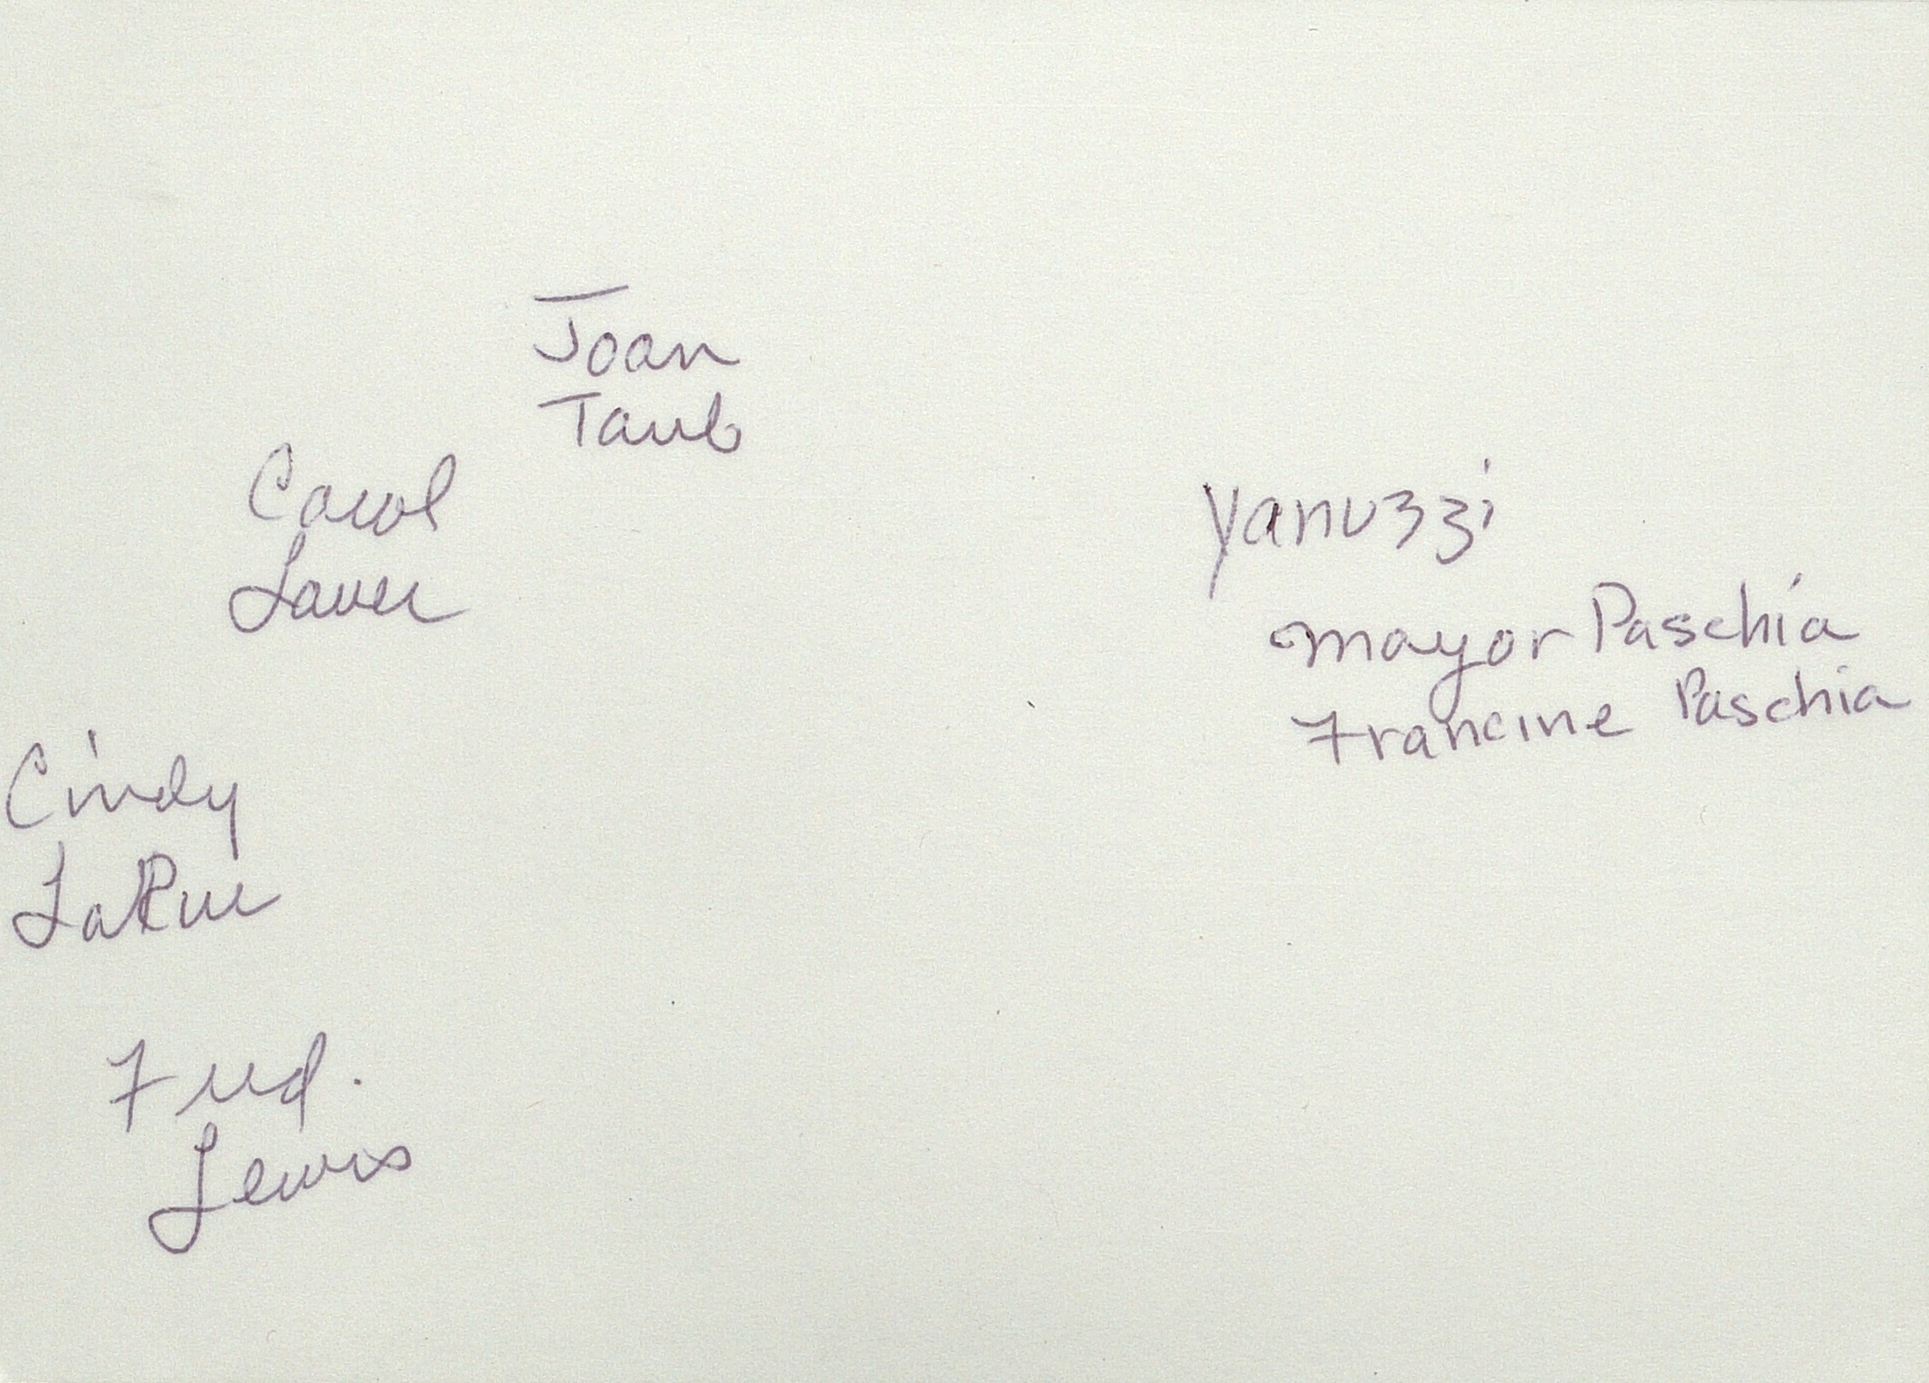 Joan
Taub
Carol
Lauer
Cindy
LaRue
Fred.
Lewis
Yanuzzi
Mayor Paschia
Francine Paschia